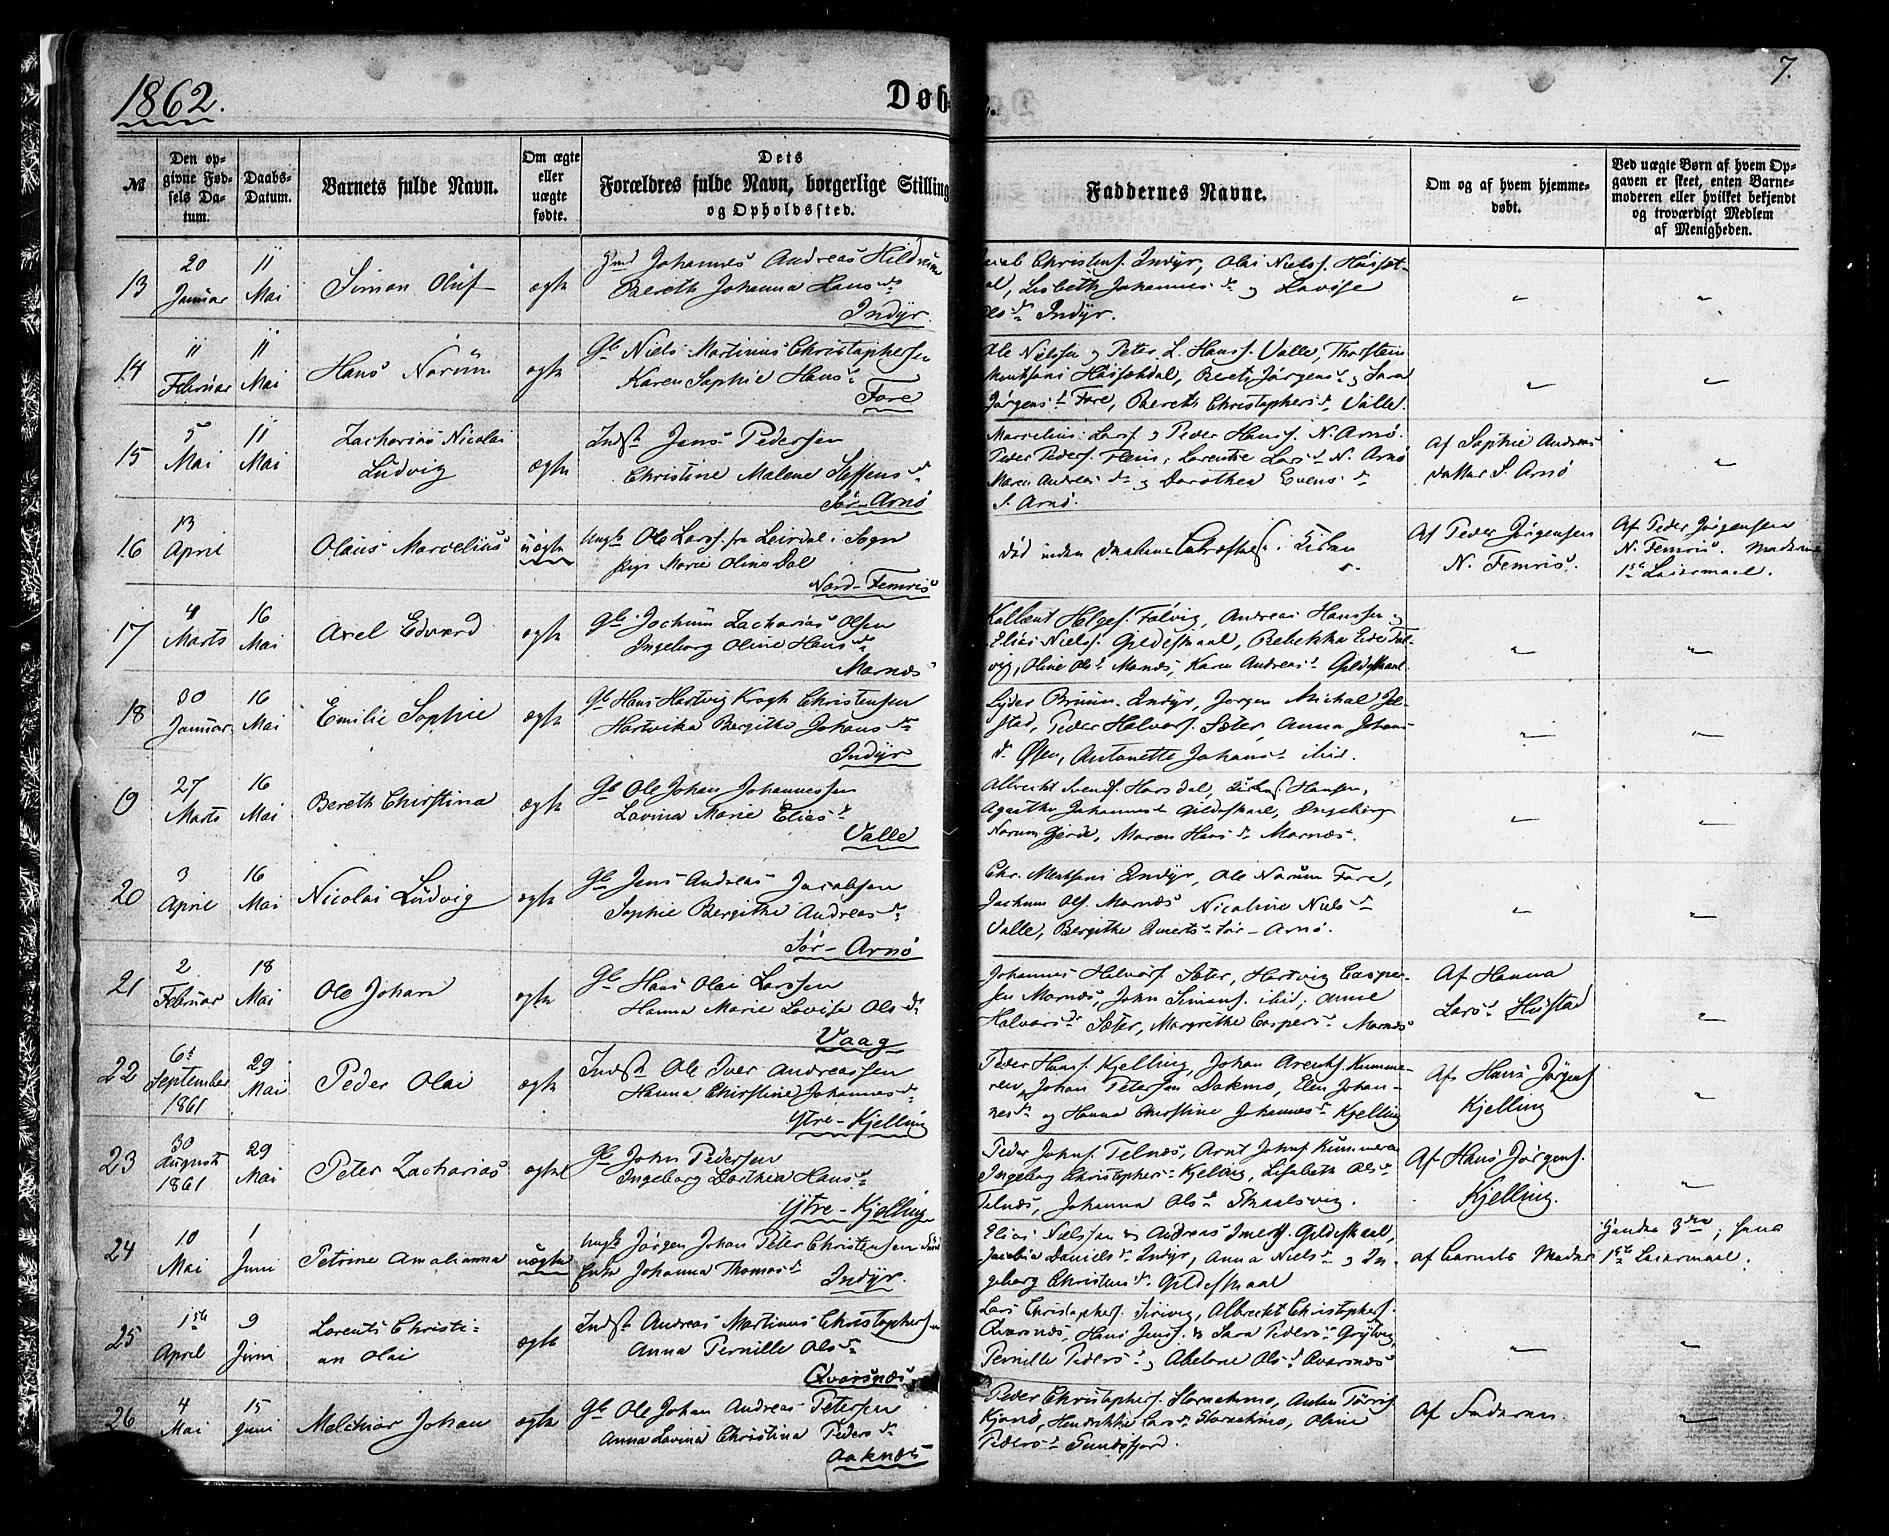 1862.
Døb
2.
7.
№
Den op-
givne Fød-
sels Da-
tum.
Daabs-
Datum.
Barnets fulde Navn.
Om ægte
eller
uægte
fødte.
Dets
Forældres fulde Navn, borgerlige Stilling
og Opholdssted.
Faddernes Navne.
Om og af hvem hjemme-
døbt.
Ved uægte Børn af hvem Op-
gaven er skeet, enten Barne-
moderen eller hvilket bekjendt
og troværdigt Medlem
af Menigheden.
13
20
Januar
11
Mai
Simon Oluf
ægte
Johannes Andreas Hildrum
Bereth Johanna Hans d.
Indyr.
Christens. Indyr, Olai Niels.
Lisbeth Johannes d. og Lovise
Ols d. Indyr.
"
"
14
11
Februar
11
Mai
Hans Norum
ægte
Gb Niels Martinus Christophersen
Karen Sophie Hans d.
Fore
Ole Nielsen og Peter L. Hans. Valle, Thorstein
Jørgens d. Fore, Bereth Christophers d. Valle.
"
"
15
5
Mai
11
Mai
Zacharias Nicolai
Ludvig
ægte
Indst Jens Pedersen
Christine Malene Steffens d.
Sør-Arnø
Marcelius Lars. og Peder Hans. N. Arnø.
Peder Peders. Flein, Lorentse Lars d. N. Arnø
Maren Andreas d. og Dorothea Evens d.
S. Arnø.
Af Sophie Andreas
datter S. Arnø
"
16
13
April
Olaus Marcelius
uægte
Ungk Ole Lars. fra Leirdal i Sogn
pige Marie Oline Dal
Nord-Femris
død inden
Af Peder Jørgensen
N. Femris.
Af Peder Jørgensen
N. Femris. Moderens
1ste Leiermaal.
17
4
Marts
16
Mai
Axel Edvard
ægte
Gb Jochum Zacharias Olsen
Ingeborg Oline Hans d.
Marnæs
Helges. Falvig, Andreas Hanssen og
Elias Niels. Gildeskaal, Rebekka
Oline Ols d. Marnæs, Karen Andreas d. Gildeskaal
"
"
18
30
Januar
16
Mai
Emilie Sophie
ægte
Gb Hans Hartvig Krogh Christensen
Hartvika Bergitte Johans d.
Indyr
Lyder Bruun Indyr, Jørgen Michal Jel-
stad, Peder Halvors. Sæter, Anna Johan
d. Øien, Antonette Johans d. ibid.
"
"
19
27
Marts
16
Mai
Bereth Christina
ægte
Gb Ole Johan Johannessen
Lovina Marie Elias d.
Valle
Albrecht Svends. Horsdal, Hansen,
Agathe Johannes d. Gildeskaal, Ingeborg
Norum Gjerde, Maren Hans d. Marnæs.
"
"
20
3
April
16
Mai
Nicolai Ludvig
ægte
Gb Jens Andreas Jacobsen
Sophie Bergithe Andreas d.
Sør-Arnø
Chr. Mentsens Indyr, Ole Norum Fore,
Jochum Ols. Marnæs Nicoline Niels d.
Valle, Bergithe Sør-Arnø.
"
"
21
2
Februar
18
Mai
Ole Johan
ægte
Gb Hans Olai Larssen
Hanna Marie Lovise Ols d.
Vaag
Johannes Halvors. Sæter, Hartvig Casper-
sen Marnæs, John Simons. ibid, Anne
Halvors d. Sæter, Margrethe Caspers d. Marnæs
Af Hanna
Lars d. Hustad
"
22
6te
September
1861
29
Mai
Peder Olai
ægte
Indst Ole Iver Andreassen
Hanna Christine Johannes d.
Ytre-Kjelling
Peder Hans. Kjelling, Johan Arents. Kumme-
ren, Johan Petersen Dokmo, Elen Johan-
nes d. og Hanna Christine Johannes d. Kjelling
Af Hans Jørgens.
Kjelling
"
23
30
August
1861
29
Mai
Peter Zacharias
ægte
Gb John Pedersen
Ingeborg Dorthea Hans d.
Ytre-Kjelling
Peder Johns. Telnæs, Arnt Johns. Kummeren
Ingeborg Christophers d. Kjelling, Lisabeth Ols d.
Telnæs, Johanna Ols d. Skaalsvig.
Af Hans Jørgens.
Kjelling.
"
24
10
Mai
1
Juni
Petrine Amalianna
uægte
Ungk Jørgen Johan Peter Christensen
Enke Johanna Thomas d.
Indyr.
Elias Nielssen og Andreas Gildeskaal,
Jacobia Daniels d. Indyr, Anna Niels d. og In-
geborg Christens d. Gildeskaal
af Barnets Moder
Hendes 3die; hans
1ste Leiermaal.
25
1ste
April
9
Juni
Lorents Christi-
an Olai
ægte
Indst Andreas Martinus Christophersen
Anna Pernille Ols d.
Qvarsnæs
Lars Christophers. Albrecht Christophers.
Qvarsnæs, Hans Jens. og Sara Peders d.
Pernille Peders d. og Abelone Ols d. Qvarsnæs
"
"
26
4
Mai
15
Juni
Melchior Johan
ægte
Gb Ole Johan Andreas Petersen
Anna Lovina Christina Peders d.
Aaknæs
Peder Christophers. Storachmo, Anton
Hendrikke Lars d. Storachmo, Oline
Peders d. Sundsfjord.
Af Faderen
"